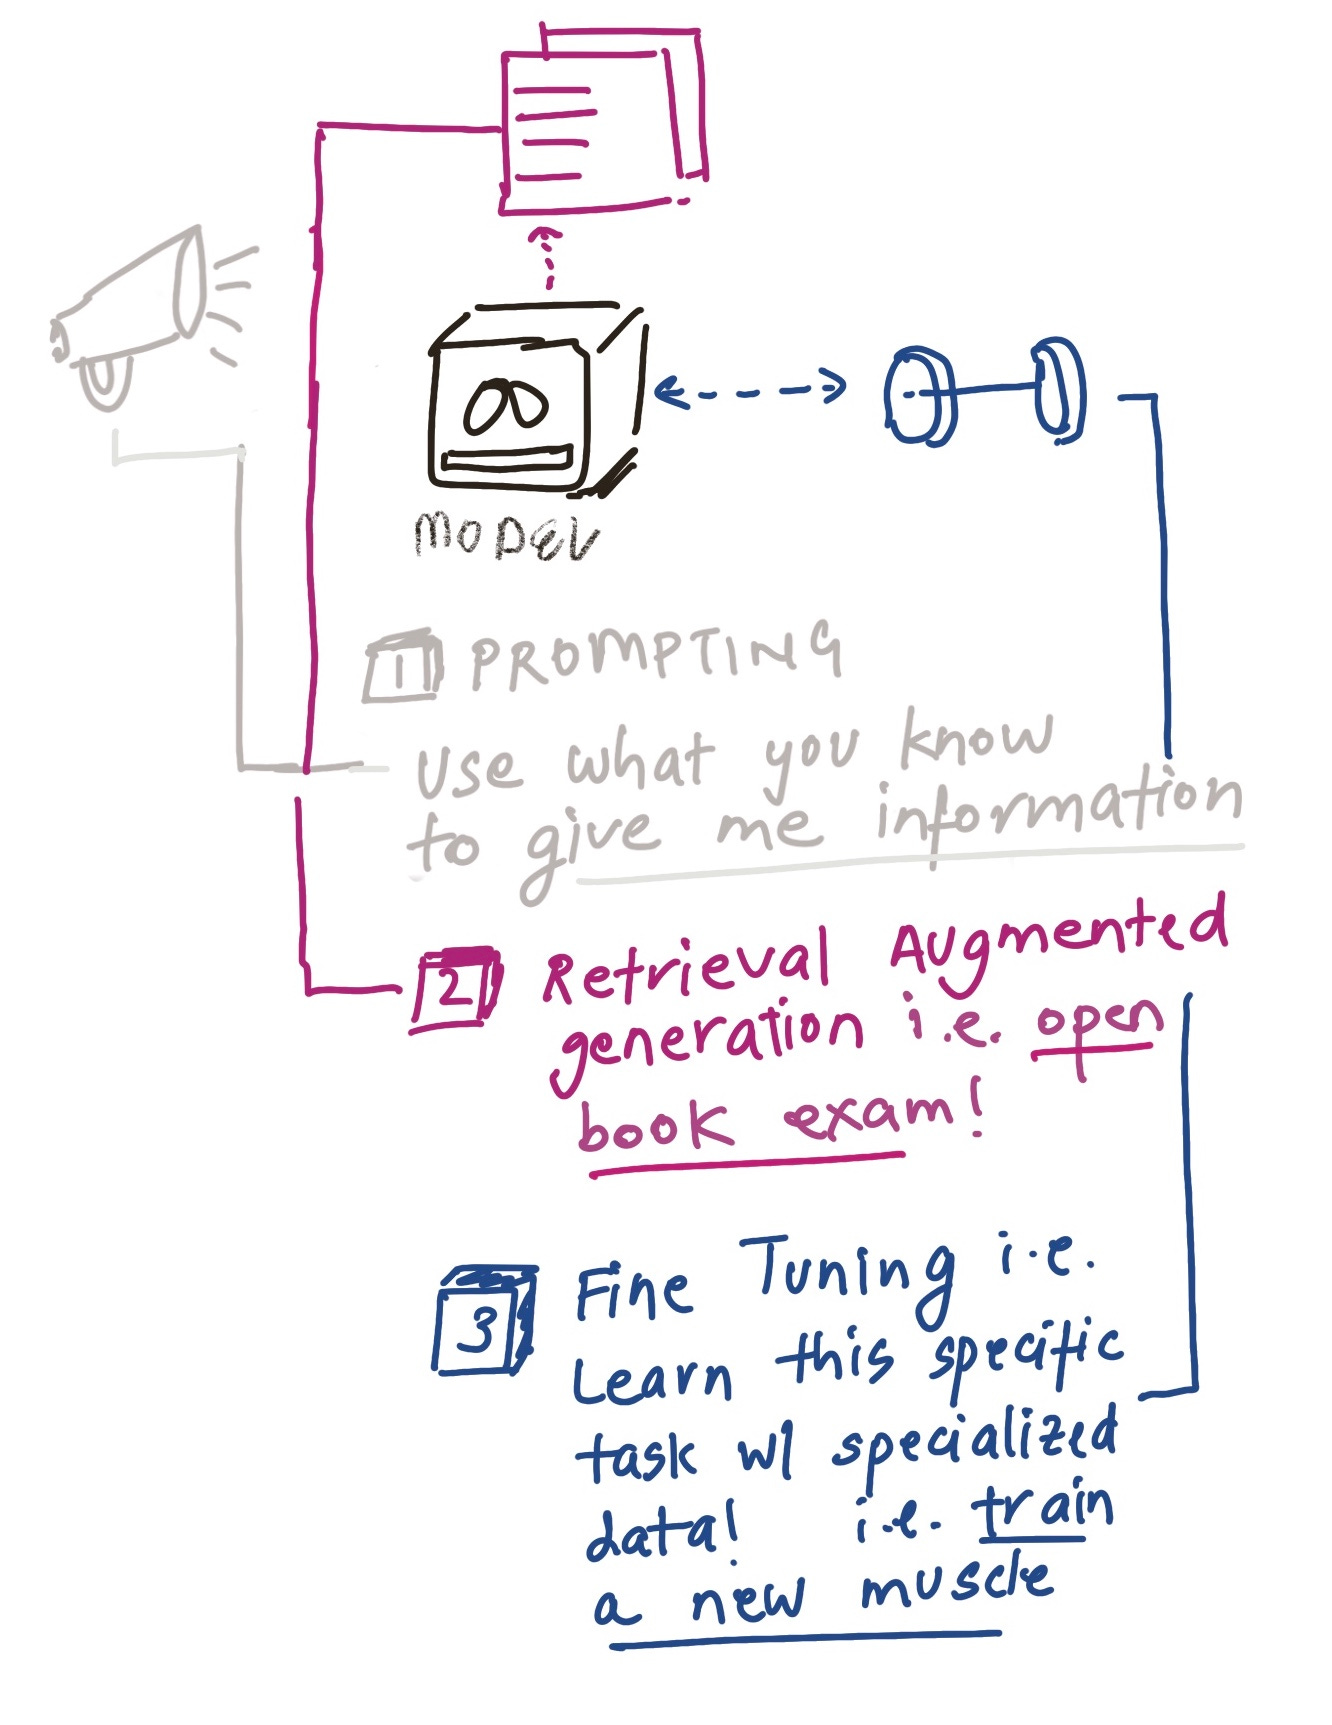 MODEL
1 PROMPTING
Use what you know
to give me information
2 Retrieval Augmented
generation i.e. open
book exam!
3 Fine Tuning i.e.
Learn this specific
task w/ specialized
data! i.e. train
a new muscle